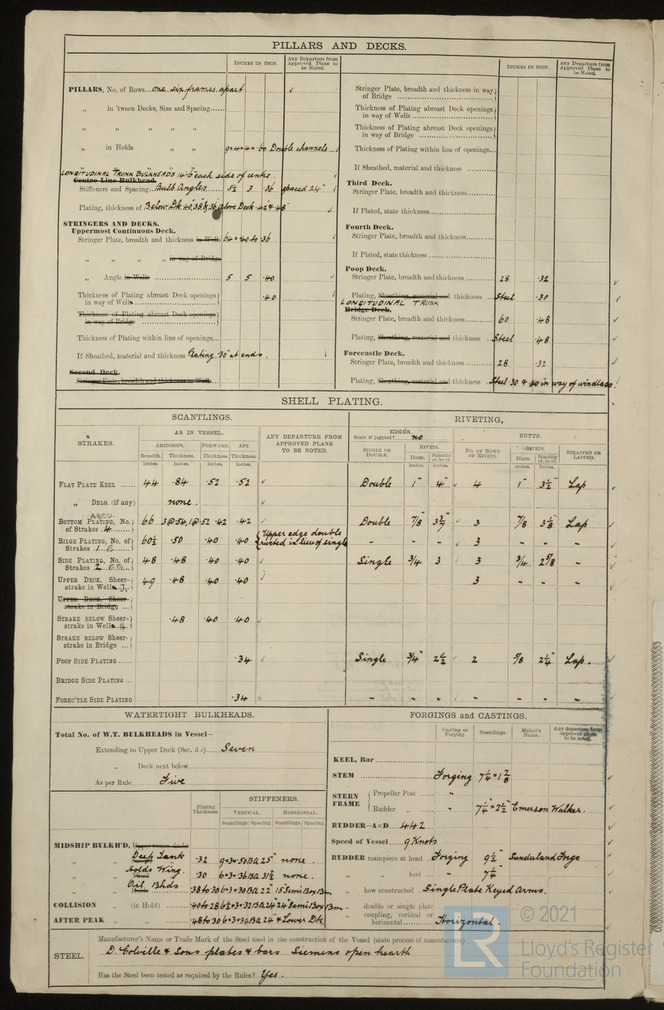 PILLARS AND DECKS.
INCHES IN SHIP. Any Departure from Approved Plans to be Noted.
PILLARS, No. of Rows... one. six frames. apart
„ in 'tween Decks, Size and Spacing......
„ „ „ „
„ in Holds „ „ Double channels.
LONGITUDINAL TRUNK BULKHEADS 14'6 each side of centre
Centre Line Bulkhead.
Stiffeners and Spacing... Bulb Angles 5½ 3 .36 spaced 24"
Plating, thickness of Below Dk
STRINGERS AND DECKS.
Uppermost Continuous Deck.
Stringer Plate, breadth and thickness in Wells
„ „ in way of Bridge
„ Angle in Wells 5 5 .40
Thickness of Plating abreast Deck openings in way of Wells .40
Thickness of Plating abreast Deck openings in way of Bridge
Thickness of Plating within line of openings
If Sheathed, material and thickness Plating .30 at ends.
Second Deck.
Stringer Plate, breadth and thickness in Wells
INCHES IN SHIP. any Departure from Approved Plans to be Noted.
Stringer Plate, breadth and thickness in way of Bridge
Thickness of Plating abreast Deck openings in way of Wells
Thickness of Plating abreast Deck openings in way of Bridge
Thickness of Plating within line of openings...
If Sheathed, material and thickness
Third Deck.
Stringer Plate, breadth and thickness
If Plated, state thickness
Fourth Deck.
Stringer Plate, breadth and thickness
If Plated, state thickness
Poop Deck.
Stringer Plate, breadth and thickness 28 .32
Plating, Sheathing, material and thickness Steel .30
LONGITUDINAL TRUNK
Bridge Deck.
Stringer Plate, breadth and thickness 60 .48
Plating, Sheathing, material and thickness Steel .48
Forecastle Deck.
Stringer Plate, breadth and thickness 28 .32
Plating, Sheathing, material and thickness Steel .30 & .40 in way of windlass.
SHELL PLATING.
SCANTLINGS. RIVETING.
STRAKES. AS IN VESSEL. ANY DEPARTURE FROM APPROVED PLANS TO BE NOTED. EDGES. State if joggled? no BUTTS.
AMIDSHIPS. FORWARD. AFT. SINGLE OR DOUBLE. RIVETS. No. OF ROWS OF RIVETS. RIVETS. STRAPPED OR LAPPED.
Breadth. Thickness. Thickness. Thickness. Diam. Spacing cr. to cr. Diam. Spacing cr. to cr.
FLAT PLATE KEEL 44 .84 .52 .52 Double 1" 4" 4 1" 3½ Lap
„ DBLG. (if any) none.
BOTTOM PLATING, No. of Strakes 4 66 .42 .42 Double 7/8 3 7/8 Lap
BILGE PLATING, No. of Strakes 1 60½ .50 .40 .40 Upper edge double riveted in lieu of single „ „ „ 3 „ „ „
SIDE PLATING, No. of Strakes 2 48 .48 .40 .40 Single 3/4 3 3 3/4 2 5/8 „
UPPER DECK, Sheerstrake in Wells 49 .48 .40 .40 3
UPPER DECK, Sheerstrake in Bridge
STRAKE BELOW Sheerstrake in Wells .48 .40 .40
STRAKE BELOW Sheerstrake in Bridge ...
POOP SIDE PLATING .34 Single 3/4 2½ 2 5/8 2¼ Lap.
BRIDGE SIDE PLATING
FOREC'TLE SIDE PLATING .34 „ „ „ „ „ „ „
WATERTIGHT BULKHEADS.
Total No. of W.T. BULKHEADS in Vessel—
Extending to Upper Deck (Sec. 3 c) Seven
„ Deck next below
As per Rule Five
Plating Thickness. STIFFENERS.
VERTICAL. HORIZONTAL.
Scantlings. Spacing. Scantlings. Spacing.
MIDSHIP BULKH'D,
„ „ Deep Tank .32 25" none.
„ „ Holds Wing. .30 31½ none.
„ „ Oil Bhds
COLLISION „ (in Hold)
AFTER PEAK „ „
FORGINGS and CASTINGS.
Casting or Forging. Scantlings. Maker's Name. Any departure from approved plans to be noted.
KEEL, Bar
STEM Forging
STERN FRAME Propeller Post „
Rudder „ „ Emerson Walker.
RUDDER—A×D. 442
Speed of Vessel 9 Knots
RUDDER mainpiece at head Forging 9½ Sunderland Forge
„ „ heel „ 7¼
„ how constructed Single Plate Keyed Arms.
„ double or single plate
„ coupling, vertical or horizontal Horizontal.
STEEL. Manufacturer's Name or Trade Mark of the Steel used in the construction of the Vessel (state process of manufacture)
D. Colville & Sons plates & bars Siemens open hearth
Has the Steel been tested as required by the Rules? Yes.
LR © 2021
Lloyd's Register
Foundation